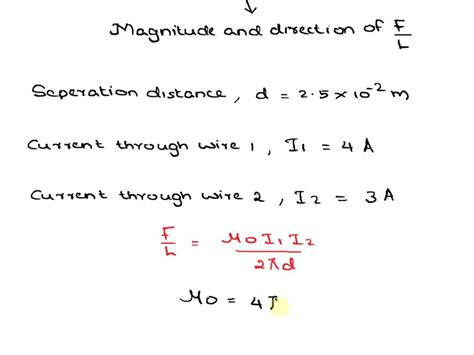 Magnitude and direction of F/L
Seperation distance, d = 2.5×10⁻² m
Current through wire 1, I₁ = 4 A
Current through wire 2, I₂ = 3 A
F/L = μ₀ I₁ I₂ / 2πd
μ₀ = 4π